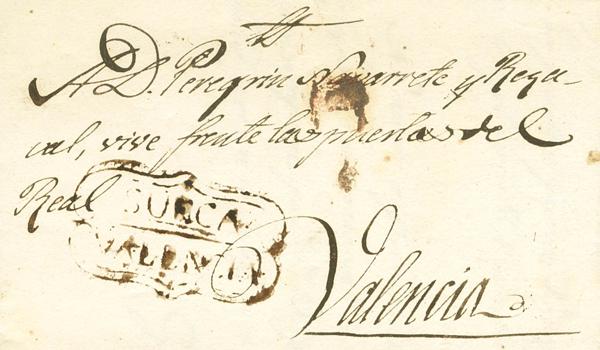 A D. Peregrin Navarrete y Reque-
nal, vive frente las puertas del
Real
SUECA
VALENCIA
Valencia